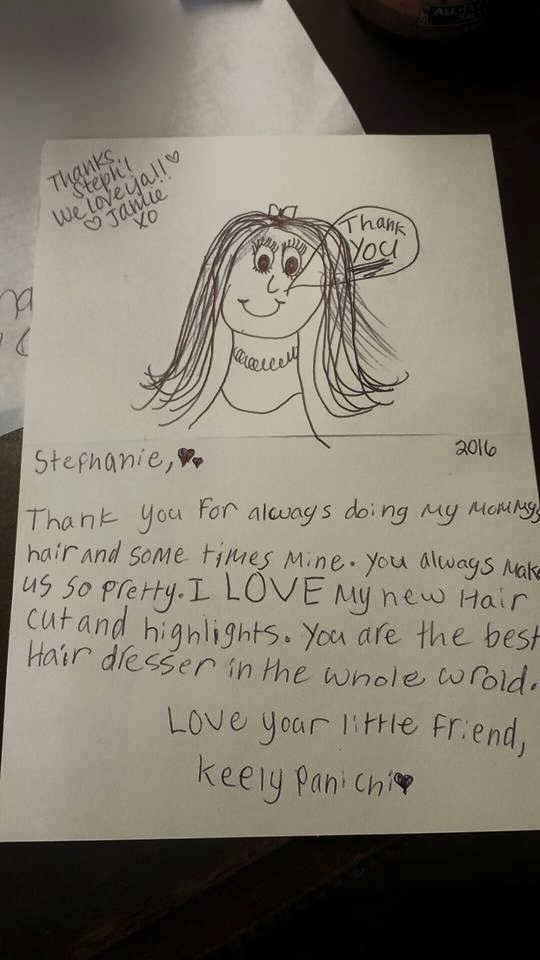 Thanks
Steph!
We love ya!!♡
♡ Jamie
XO
Thank
You
2016
Stephanie,
Thank you For always doing My Mommys
hair and some times Mine. you always make
us so pretty. I LOVE My new Hair
cut and highlights. You are the best
Hair dresser in the whole wrold.
Love your little friend,
Keely Panichi